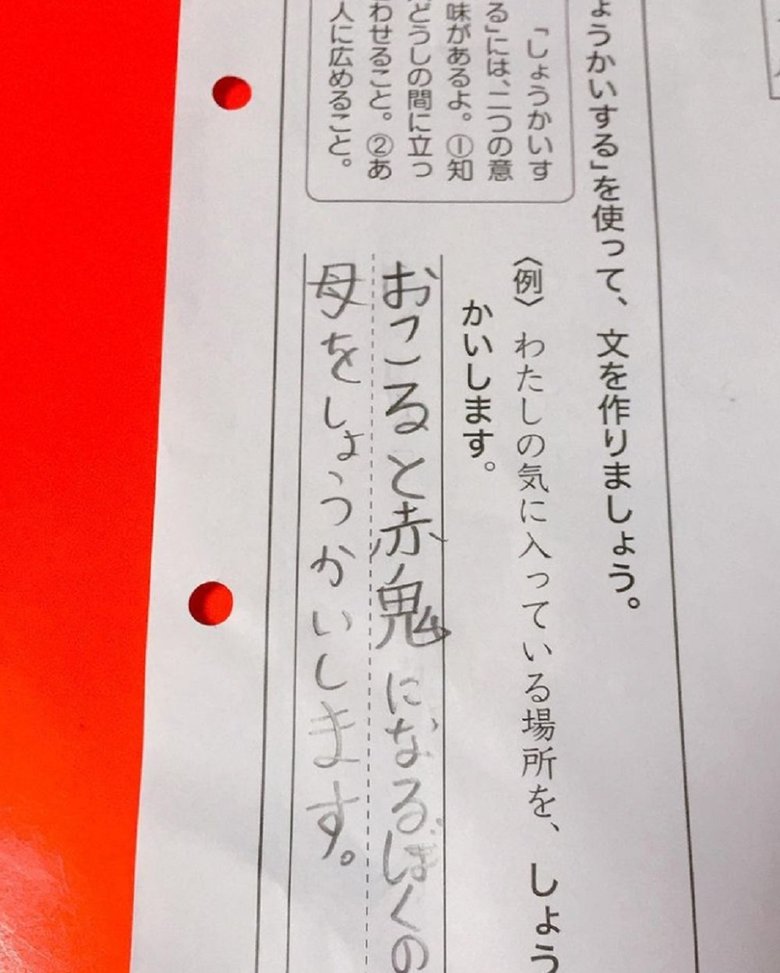 ょうかいする」を使って、文を作りましょう。
「しょうかいす
る」には、二つの意
味があるよ。①知
どうしの間に立っ
わせること。②あ
人に広めること。
〈例〉わたしの気に入っている場所を、しょう
かいします。
おこると赤鬼になるぼくの
母をしょうかいします。